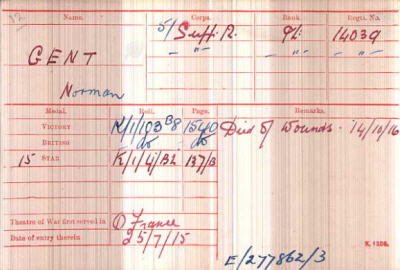 Name. Corps. Rank. Regtl. No.
GENT 5/Suff. R. Pte. 14039
- "- - "- "
Norman
Medal. Roll. Page. Remarks.
VICTORY K/1/103 B8 1540 Died of Wounds. 14/10/16
BRITISH do do
15 STAR K/1/4/B2 137/B
Theatre of War first served in (1) France
Date of entry therein 25/7/15
E/277862/3
K. 1380.